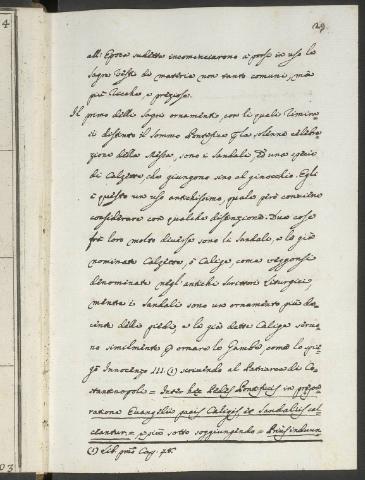 29
all'Epoca sudetta incominciarono a porsi in uso le
sagre Vesti di materia non tanto comuni, mà
più ricche, e preziose.
Il primo delle Sagre ornamenta, con li quali rimira
si distinto il Sommo Pontefice la solenne celebra
zione della Messa, sono i Sandali, ed una specie
di Calzette, che giungono sino al ginocchio. Egli
è questo un uso antichissimo, quale però conviene
considerare con qualche distinzione. Due cose
frà loro molto diverse sono li Sandali, e le già
nominate Calzette, ò Calige, come veggonsi
denominate negl'antichi Scrittori Liturgici,
mentre i Sandali sono un ornamento più de
cente delle piedi, e le già dette Calige servo
no similmente ad ornare le Gambe, come lo spie
gò Innocenzo III. (1) scrivendo al Patriarca di Co
stantinopoli = Inter hæc Pedes Pontificis in præpa
ratione Evangelii pacis Caligis, et Sandaliis cal
ceantur =, e più sotto soggiungendo = Prius induun
(1) Lib. pmo Cap.
4
03